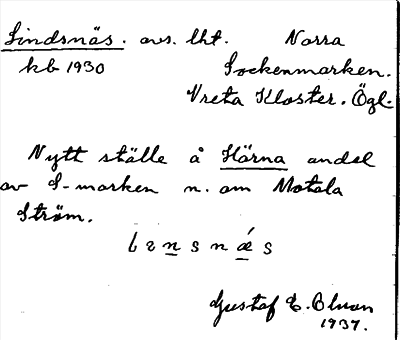 Lindsnäs. avs. lht. Norra
kb 1930 Sockenmarken.
Vreta Kloster. Ögl.
Nytt ställe å Härna andel
av S-marken n. om Motala
Ström.
Gustaf E. Olson
1937.